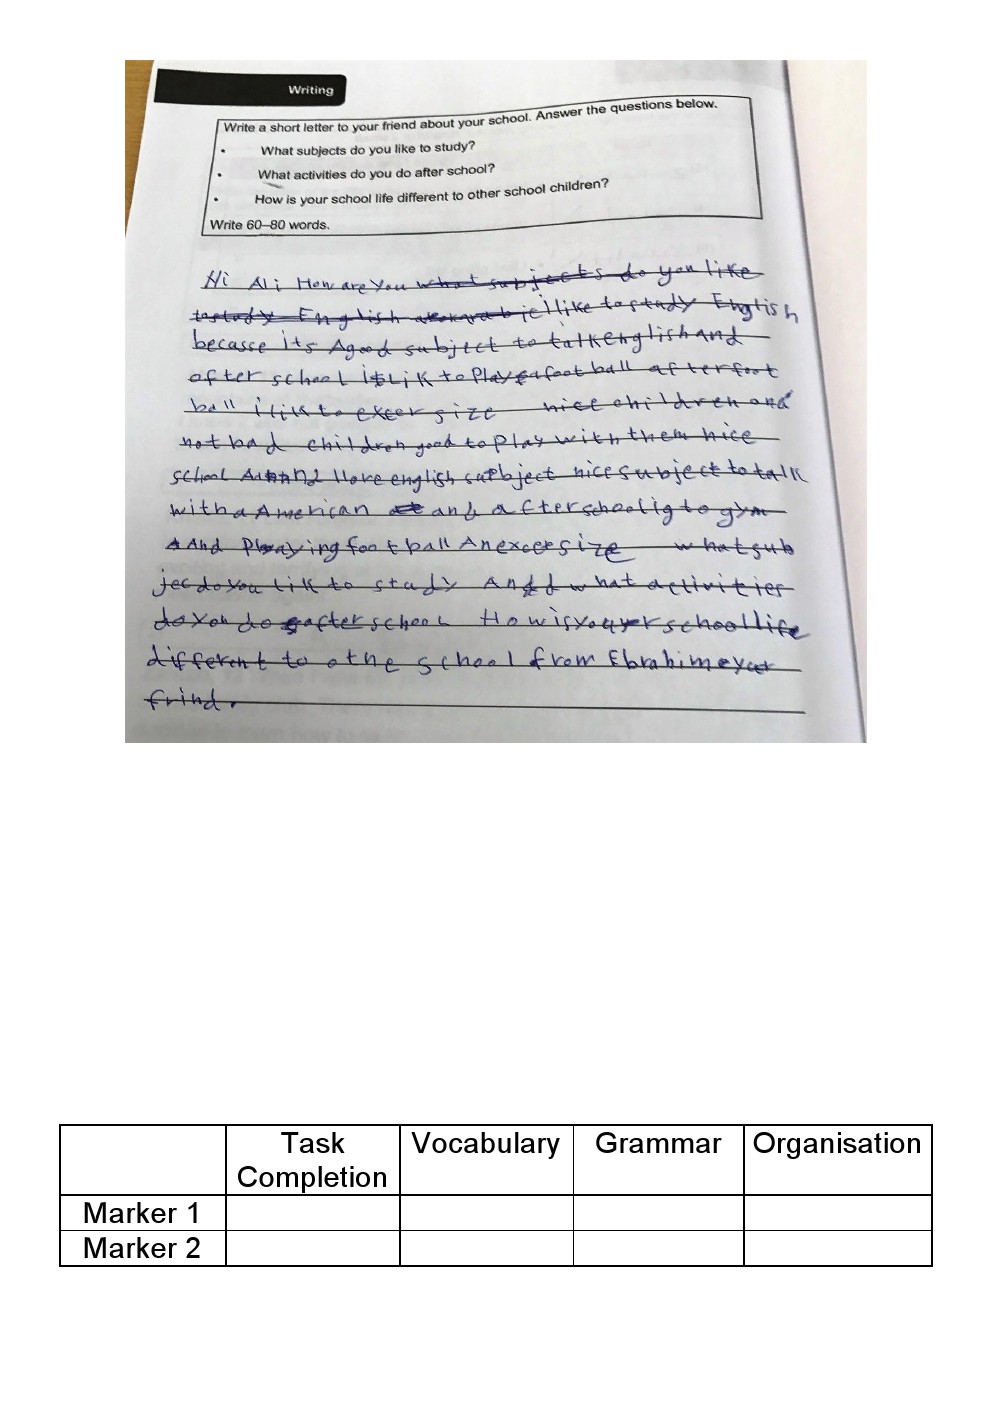 Writing
Write a short letter to your friend about your school. Answer the questions below.
• What subjects do you like to study?
• What activities do you do after school?
• How is your school life different to other school children?
Write 60–80 words.
Hi Ali How are you what subjects do you like
to study English i like to study English
becasse its A good subject to talk english and
after school i Lik to Play a foot ball after foot
ball i lik to excersize nice children and
not bad children good to play with them nice
school And I love english subject nice subject to talk
with a American and after school i g to gym
And Playing foot ball An excersize what sub
jec do you lik to study And what activities
do you do after school How is your school life
different to othe school from Ebrahim
frind.
Task Completion Vocabulary Grammar Organisation
Marker 1
Marker 2